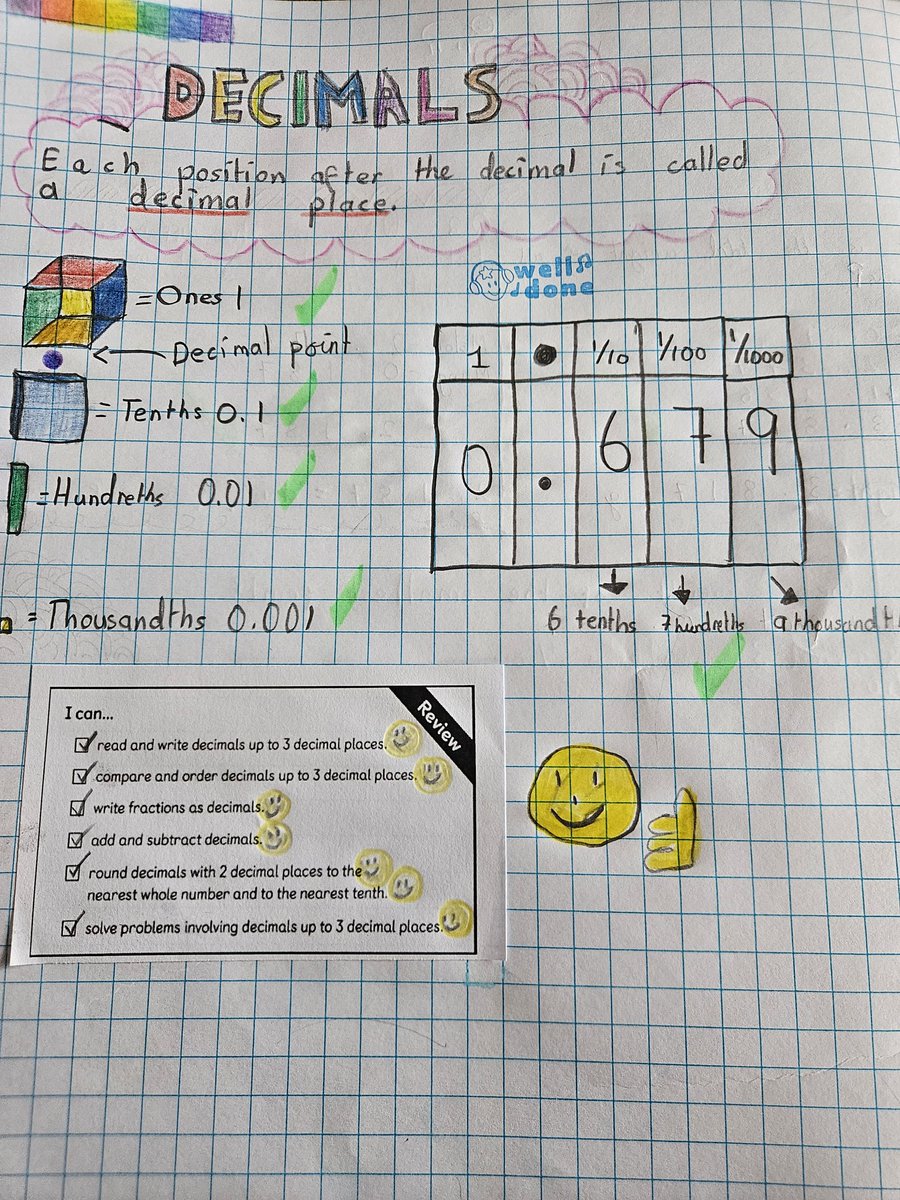 DECIMALS
Each position after the decimal is called
a decimal place.
= Ones 1
well
done
Decimal point
= Tenths 0.1
= Hundreths 0.01
= Thousandths 0.001
1 • 1/10 1/100 1/1000
0 . 6 7 9
6 tenths 7 hundreths 9 thousandt
Review
I can...
read and write decimals up to 3 decimal places.
compare and order decimals up to 3 decimal places.
write fractions as decimals.
add and subtract decimals.
round decimals with 2 decimal places to the
nearest whole number and to the nearest tenth.
solve problems involving decimals up to 3 decimal places.